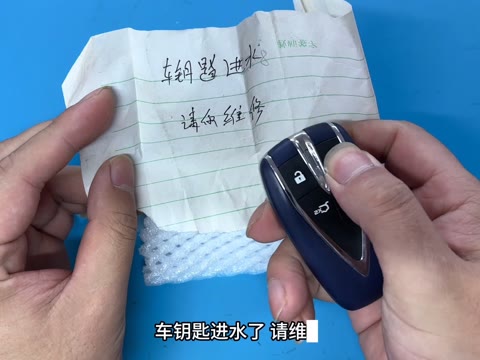 车钥匙进水
请你维修
车钥匙进水了 请维